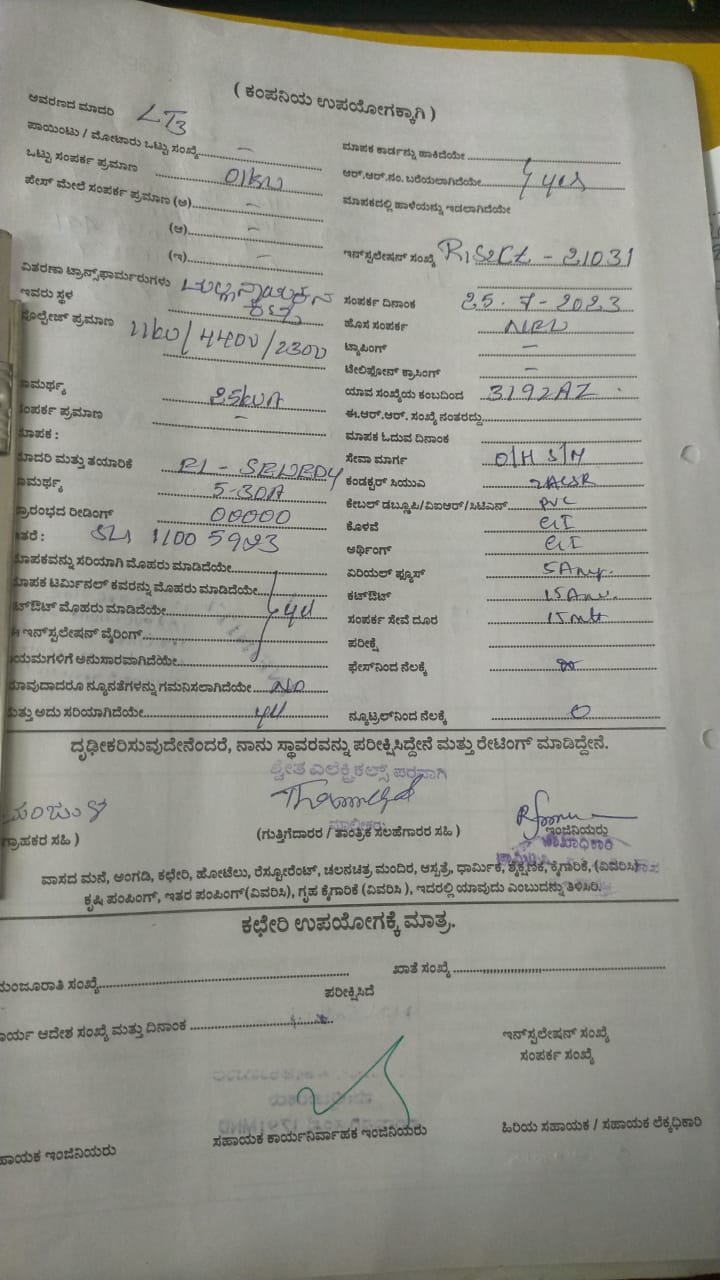 ( ಕಂಪನಿಯ ಉಪಯೋಗಕ್ಕಾಗಿ )
ಆವರಣದ ಮಾದರಿ LT3
ಪಾಯಿಂಟು / ಮೋಟಾರು ಒಟ್ಟು ಸಂಖ್ಯೆ –
ಒಟ್ಟು ಸಂಪರ್ಕ ಪ್ರಮಾಣ 01kw
ಫೇಸ್ ಮೇಲೆ ಸಂಪರ್ಕ ಪ್ರಮಾಣ (ಅ) –
(ಆ) –
(ಇ) –
ವಿತರಣಾ ಟ್ರಾನ್ಸ್‌ಫಾರ್ಮರುಗಳು
ಇವರು ಸ್ಥಳ
ವೋಲ್ಟೇಜ್ ಪ್ರಮಾಣ 11kv/440v/230v
ಸಾಮರ್ಥ್ಯ 25kVA
ಸಂಪರ್ಕ ಪ್ರಮಾಣ –
ಮಾಪಕ :
ಮಾದರಿ ಮತ್ತು ತಯಾರಿಕೆ
ಸಾಮರ್ಥ್ಯ 5-30A
ಪ್ರಾರಂಭದ ರೀಡಿಂಗ್ 00000
ಇತರೆ :
ಮಾಪಕವನ್ನು ಸರಿಯಾಗಿ ಮೊಹರು ಮಾಡಿದೆಯೇ
ಮಾಪಕ ಟರ್ಮಿನಲ್ ಕವರನ್ನು ಮೊಹರು ಮಾಡಿದೆಯೇ
ಕಟ್‌ಔಟ್ ಮೊಹರು ಮಾಡಿದೆಯೇ yes
ಈ ಇನ್‌ಸ್ಟಲೇಷನ್ ವೈರಿಂಗ್
ನಿಯಮಗಳಿಗೆ ಅನುಸಾರವಾಗಿದೆಯೇ
ಯಾವುದಾದರೂ ನ್ಯೂನತೆಗಳನ್ನು ಗಮನಿಸಲಾಗಿದೆಯೇ NO
ಮತ್ತು ಅದು ಸರಿಯಾಗಿದೆಯೇ yes
ಮಾಪಕ ಕಾರ್ಡನ್ನು ಹಾಕಿದೆಯೇ
ಆರ್.ಆರ್.ನಂ. ಬರೆಯಲಾಗಿದೆಯೇ yes
ಮಾಪಕದಲ್ಲಿ ಹಾಳೆಯನ್ನು ಇಡಲಾಗಿದೆಯೇ
ಇನ್‌ಸ್ಟಲೇಷನ್ ಸಂಖ್ಯೆ
ಸಂಪರ್ಕ ದಿನಾಂಕ 25.7-2023
ಹೊಸ ಸಂಪರ್ಕ NEW
ಟ್ಯಾಪಿಂಗ್ –
ಟೆಲಿಫೋನ್ ಕ್ರಾಸಿಂಗ್ –
ಯಾವ ಸಂಖ್ಯೆಯ ಕಂಬದಿಂದ 3192AZ
ಈ.ಆರ್.ಆರ್. ಸಂಖ್ಯೆ ನಂತರದ್ದು
ಮಾಪಕ ಓದುವ ದಿನಾಂಕ
ಸೇವಾ ಮಾರ್ಗ O/H S/M
ಕಂಡಕ್ಟರ್ ಸಿಯುಎ
ಕೇಬಲ್ ಡಬ್ಲ್ಯೂಪಿ/ವಿಐಆರ್/ಸಿಟಿಎಸ್ PVC
ಕೊಳವೆ GI
ಅರ್ಥಿಂಗ್ GI
ಏರಿಯಲ್ ಫ್ಯೂಸ್ 5Amp.
ಕಟ್‌ಔಟ್ 15Am.
ಸಂಪರ್ಕ ಸೇವೆ ದೂರ 15mt
ಪರೀಕ್ಷೆ
ಫೇಸ್‌ನಿಂದ ನೆಲಕ್ಕೆ
ನ್ಯೂಟ್ರಲ್‌ನಿಂದ ನೆಲಕ್ಕೆ 0
ದೃಢೀಕರಿಸುವುದೇನೆಂದರೆ, ನಾನು ಸ್ಥಾವರವನ್ನು ಪರೀಕ್ಷಿಸಿದ್ದೇನೆ ಮತ್ತು ರೇಟಿಂಗ್ ಮಾಡಿದ್ದೇನೆ.
ಶ್ವೇತ ಎಲೆಕ್ಟ್ರಿಕಲ್ಸ್ ಪರವಾಗಿ
ಮಾಲೀಕರು
ಗ್ರಾಹಕರ ಸಹಿ )
(ಗುತ್ತಿಗೆದಾರರ / ತಾಂತ್ರಿಕ ಸಲಹೆಗಾರರ ಸಹಿ )
ಇಂಜಿನಿಯರು
ಶಾಖಾಧಿಕಾರಿ
ವಾಸದ ಮನೆ, ಅಂಗಡಿ, ಕಛೇರಿ, ಹೋಟೆಲು, ರೆಸ್ಟೋರೆಂಟ್, ಚಲನಚಿತ್ರ ಮಂದಿರ, ಆಸ್ಪತ್ರೆ, ಧಾರ್ಮಿಕ, ಶೈಕ್ಷಣಿಕ, ಕೈಗಾರಿಕೆ, (ವಿವರಿಸಿ)
ಕೃಷಿ ಪಂಪಿಂಗ್, ಇತರ ಪಂಪಿಂಗ್(ವಿವರಿಸಿ), ಗೃಹ ಕೈಗಾರಿಕೆ (ವಿವರಿಸಿ ), ಇದರಲ್ಲಿ ಯಾವುದು ಎಂಬುದನ್ನು ತಿಳಿಸಿರಿ.
ಕಛೇರಿ ಉಪಯೋಗಕ್ಕೆ ಮಾತ್ರ.
ಮಂಜೂರಾತಿ ಸಂಖ್ಯೆ
ಖಾತೆ ಸಂಖ್ಯೆ
ಪರೀಕ್ಷಿಸಿದೆ
ಕಾರ್ಯ ಆದೇಶ ಸಂಖ್ಯೆ ಮತ್ತು ದಿನಾಂಕ
ಇನ್‌ಸ್ಟಲೇಷನ್ ಸಂಖ್ಯೆ
ಸಂಪರ್ಕ ಸಂಖ್ಯೆ
ಸಹಾಯಕ ಇಂಜಿನಿಯರು
ಸಹಾಯಕ ಕಾರ್ಯನಿರ್ವಾಹಕ ಇಂಜಿನಿಯರು
ಹಿರಿಯ ಸಹಾಯಕ / ಸಹಾಯಕ ಲೆಕ್ಕಧಿಕಾರಿ